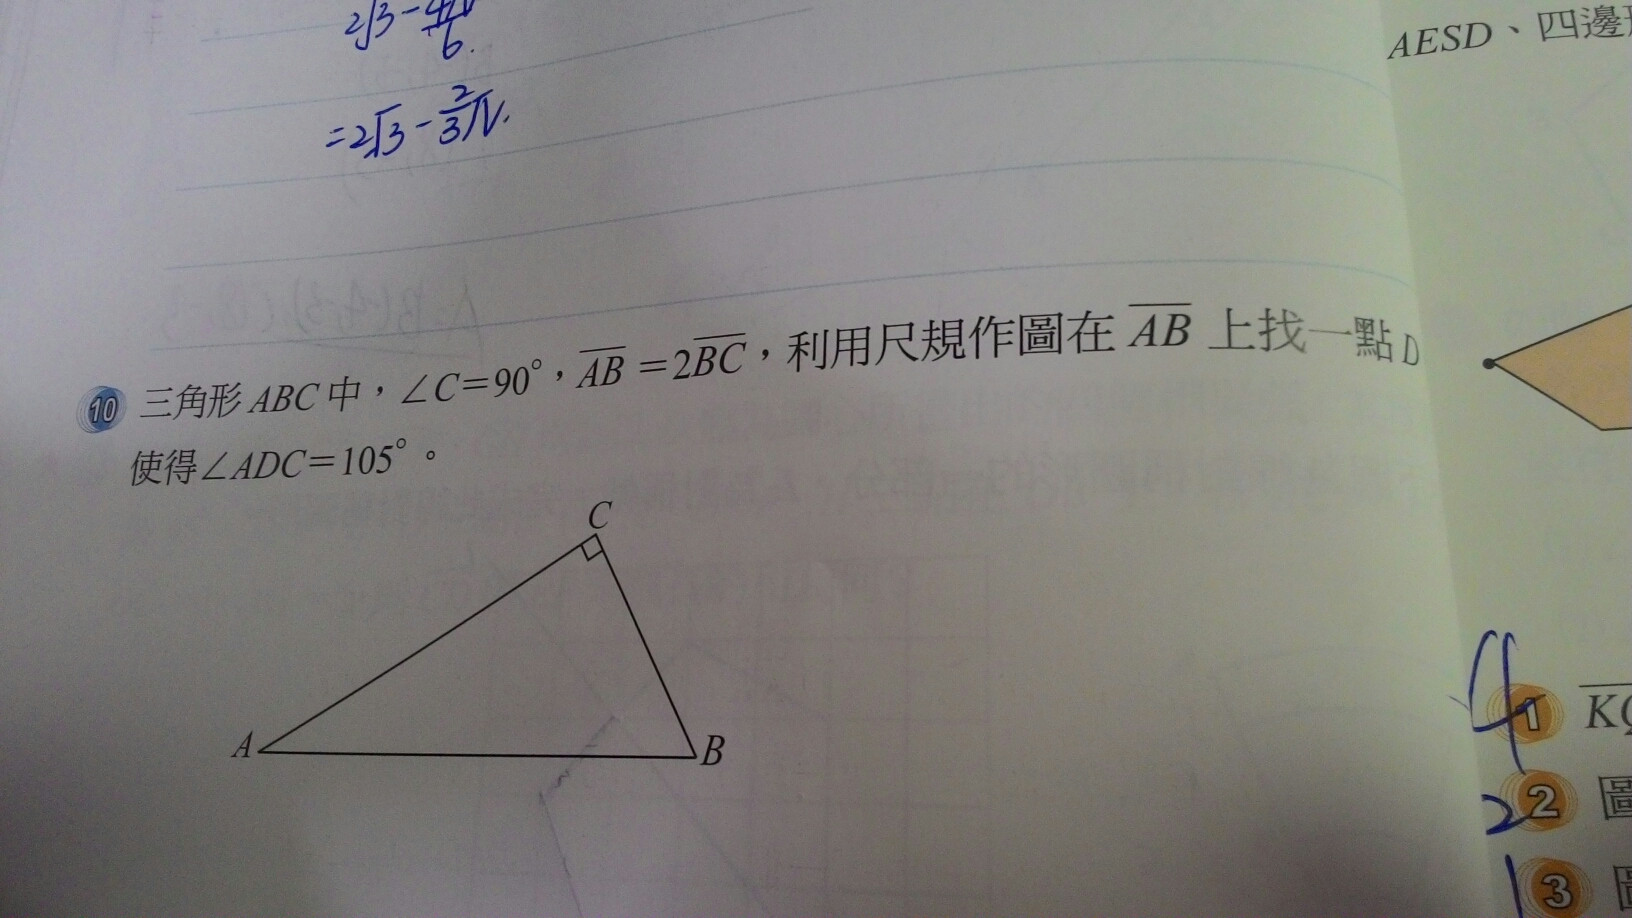 2√3-
6.
=2√3-2/3π.
AESD、四邊
10 三角形 ABC 中，∠C=90°，AB=2BC，利用尺規作圖在 AB 上找一點 D
使得∠ADC=105°。
C
A
B
1
2 圖
3 圖